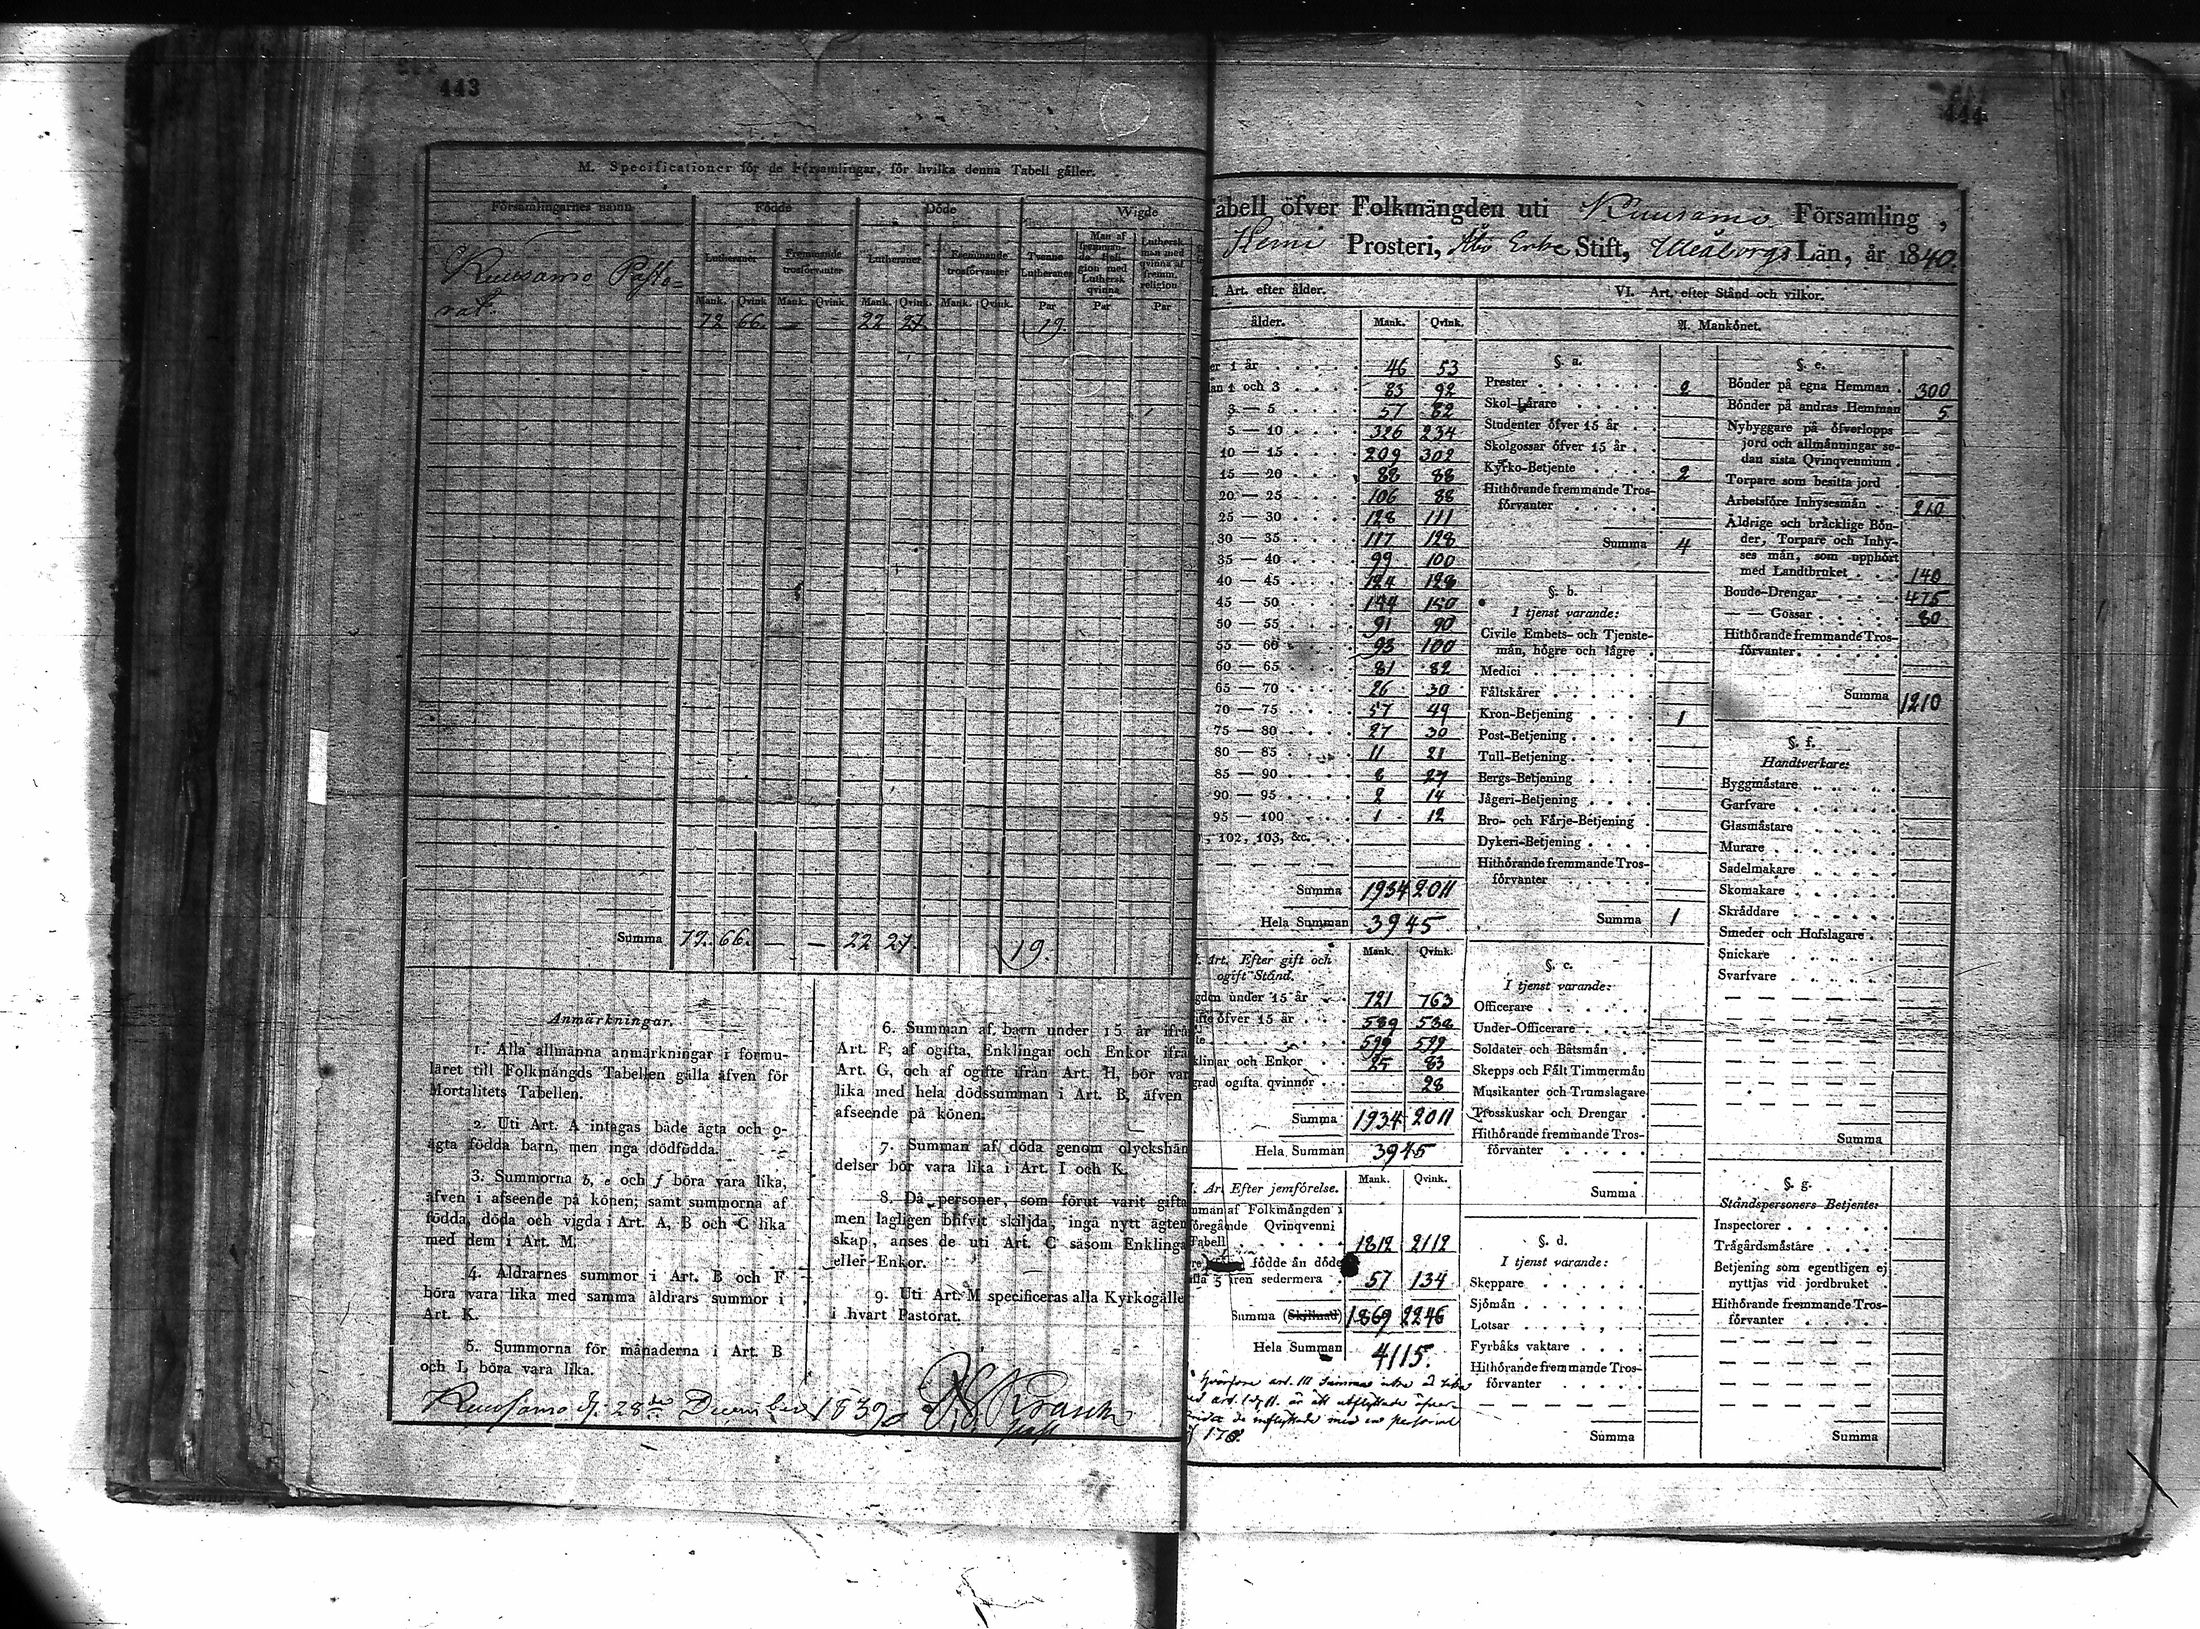 443
M. Specificationer för de Församlingar, för hvilka denna Tabell gäller.
Församlingarnes namn
Födde
Döde
Wigde
Lutheraner
Fremmande trosförvanter
Lutheraner
Fremmande trosförvanter
Tvenne Lutheraner
Man af fremmande Religion med Luthersk qvinna
Luthersk man med qvinna af fremm. religion
Mank. Qvink. Mank. Qvink. Mank. Qvink. Mank. Qvink. Par Par Par
Kuusamo Pasto=
rat. 72 66. — — 22 27. 19.
Summa 72. 66. — — 22 27. 19.
Anmärkningar.
1. Alla allmänna anmärkningar i formu-
läret till Folkmängds Tabellen gälla äfven för
Mortalitets Tabellen.
2. Uti Art. A intagas både ägta och o-
ägta födda barn, men inga dödfödda.
3. Summorna b, e och f böra vara lika,
äfven i afseende på könen; samt summorna af
födda, döda och vigda i Art. A, B och C lika
med dem i Art. M.
4. Åldrarnes summor i Art. B och F
böra vara lika med samma åldrars summor i
Art. K.
5. Summorna för månaderna i Art. B
och L böra vara lika.
6. Summan af barn under 15 år ifrå
Art. F, af ogifta, Enklingar och Enkor ifrå
Art. G, och af ogifte ifrån Art. H, bör var
lika med hela dödssumman i Art. B, äfven
afseende på könen.
7. Summan af döda genom olyckshän
delser bör vara lika i Art. I och K.
8. Då personer, som förut varit gifta
men lagligen blifvit skiljda, ingå nytt ägten
skap, anses de uti Art. C såsom Enklinga
eller Enkor.
9. Uti Art. M specificeras alla Kyrkogälle
i hvart Pastorat.
Kuusamo d. 28de December 1839
444
Tabell öfver Folkmängden uti Kuusamo Församling,
Kemi Prosteri, Åbo Erke Stift, Uleåborgs Län, år 1840.
I. Art. efter ålder.
ålder. Mank. Qvink.
er 1 år 46 53
lan 1 och 3 83 92
3 — 5 57 82
5 — 10 326 234
10 — 15 209 302
15 — 20 88 88
20 — 25 106 88
25 — 30 128 111
30 — 35 117 128
35 — 40 99 100
40 — 45 124 128
45 — 50 144 150
50 — 55 91 90
55 — 60 93 100
60 — 65 81 82
65 — 70 26 30
70 — 75 57 49
75 — 80 27 30
80 — 85 11 21
85 — 90 8 27
90 — 95 2 14
95 — 100 1 12
, 102, 103, &c.
Summa 1934 2011
Hela Summan 3945
Art. Efter gift och
ogift Stånd. Mank. Qvink.
gdom under 15 år 721 763
ifte öfver 15 år 589 538
599 599
klingar och Enkor 25 83
grad ogifta qvinnor 28
Summa 1934 2011
Hela Summan 3945
Art. Efter jemförelse. Mank. Qvink.
mman af Folkmängden i
föregående Qvinqvenni
Tabell 1812 2112
födde än döde
ifla 5 åren sedermera 57 134
Summa (Skillnad) 1869 2246
Hela Summan 4115.
VI. Art. efter Stånd och vilkor.
A. Mankönet.
§. a.
Prester 2
Skol-Lärare
Studenter öfver 15 år
Skolgossar öfver 15 år
Kyrko-Betjente 2
Hithörande fremmande Tros-
förvanter
Summa 4
§. b.
I tjenst varande:
Civile Embets- och Tjenste-
män, högre och lägre
Medici
Fältskärer
Kron-Betjening 1
Post-Betjening
Tull-Betjening
Bergs-Betjening
Jägeri-Betjening
Bro- och Färje-Betjening
Dykeri-Betjening
Hithörande fremmande Tros-
förvanter
Summa 1
§. c.
I tjenst varande:
Officerare
Under-Officerare
Soldater och Båtsmän
Skepps och Fält Timmermän
Musikanter och Trumslagare
Trosskuskar och Drengar
Hithörande fremmande Tros-
förvanter
Summa
§. d.
I tjenst varande:
Skeppare
Sjömän
Lotsar
Fyrbåks vaktare
Hithörande fremmande Tros-
förvanter
Summa
§. e.
Bönder på egna Hemman 300
Bönder på andras Hemman 5
Nybyggare på öfverlopps
jord och allmänningar se-
dan sista Qvinqvennium
Torpare som besitta jord
Arbetsföre Inhysesmän 210
Åldrige och bräcklige Bön-
der, Torpare och Inhy-
ses män, som upphört
med Landtbruket 140
Bonde-Drengar 475
— — Gossar 80
Hithörande fremmande Tros-
förvanter
Summa 1210
§. f.
Handtverkare:
Byggmästare
Garfvare
Glasmästare
Murare
Sadelmakare
Skomakare
Skräddare
Smeder och Hofslagare
Snickare
Svarfvare
Summa
§. g.
Ståndspersoners Betjente:
Inspectorer
Trägårdsmästare
Betjening som egentligen ej
nyttjas vid jordbruket
Hithörande fremmande Tros-
förvanter
Summa